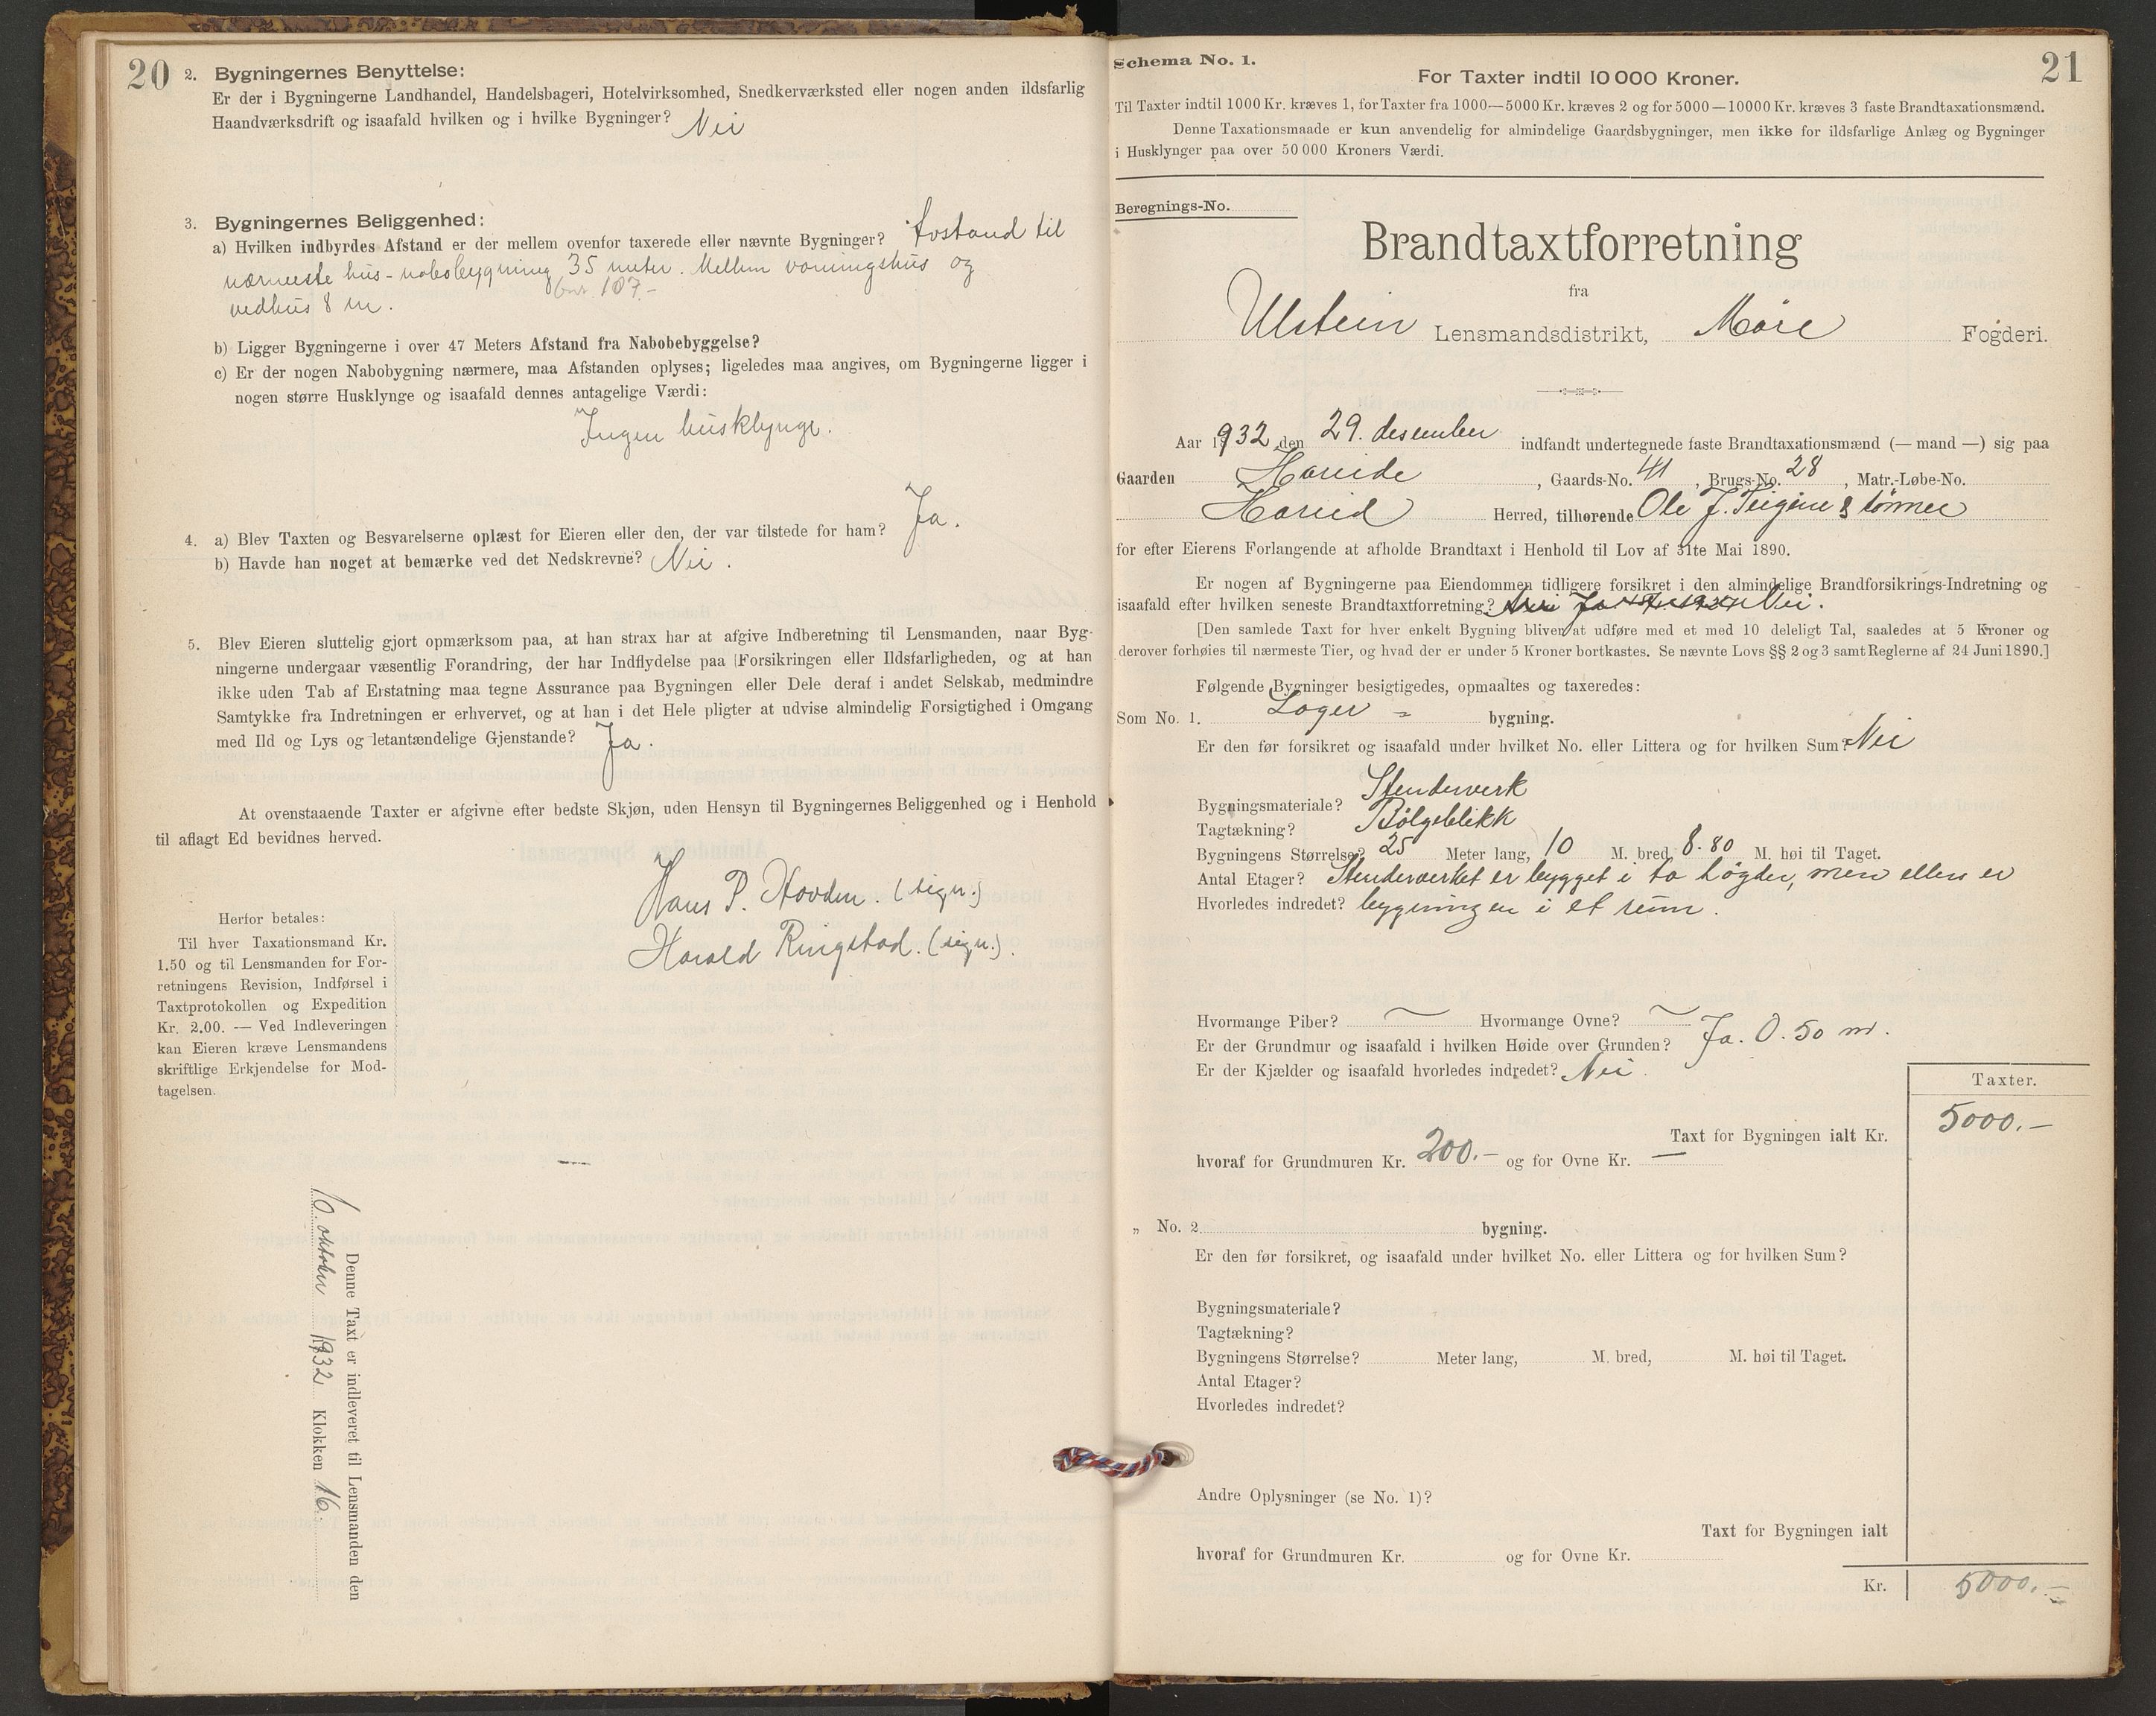 20
2. Bygningernes Benyttelse:
Er der i Bygningerne Landhandel, Handelsbageri, Hotelvirksomhed, Snedkerværksted eller nogen anden ildsfarlig
Haandværksdrift og isaafald hvilken og i hvilke Bygninger? Nei
3. Bygningernes Beliggenhed:
a) Hvilken indbyrdes Afstand er der mellem ovenfor taxerede eller nævnte Bygninger? Avstand til
nærmeste hus - nabobygning 35 meter. Mellem vaaningshus og
bnr. 107.-
vedhus 8 m.
b) Ligger Bygningerne i over 47 Meters Afstand fra Nabobebyggelse?
c) Er der nogen Nabobygning nærmere, maa Afstanden oplyses; ligeledes maa angives, om Bygningerne ligger i
nogen større Husklynge og isaafald dennes antagelige Værdi:
Ingen husklynge.
4. a) Blev Taxten og Besvarelserne oplæst for Eieren eller den, der var tilstede for ham? Ja.
b) Havde han noget at bemærke ved det Nedskrevne? Nei.
5. Blev Eieren sluttelig gjort opmærksom paa, at han strax har at afgive Indberetning til Lensmanden, naar Byg-
ningerne undergaar væsentlig Forandring, der har Indflydelse paa Forsikringen eller Ildsfarligheden, og at han
ikke uden Tab af Erstatning maa tegne Assurance paa Bygningen eller Dele deraf i andet Selskab, medmindre
Samtykke fra Indretningen er erhvervet, og at han i det Hele pligter at udvise almindelig Forsigtighed i Omgang
med Ild og Lys og letantændelige Gjenstande? Ja.
At ovenstaaende Taxter er afgivne efter bedste Skjøn, uden Hensyn til Bygningernes Beliggenhed og i Henhold
til aflagt Ed bevidnes herved.
Hans P. Hovden. (sign.)
Harald Ringstad. (sign.).
Herfor betales:
Til hver Taxationsmand Kr.
1.50 og til Lensmanden for For-
retningens Revision, Indførsel i
Taxtprotokollen og Expedition
Kr. 2.00. — Ved Indleveringen
kan Eieren kræve Lensmandens
skriftlige Erkjendelse for Mod-
tagelsen.
Denne Taxt er indleveret til Lensmanden den
10. oktober 1932 Klokken 16.
21
Schema No. 1.
For Taxter indtil 10 000 Kroner.
Til Taxter indtil 1000 Kr. kræves 1, for Taxter fra 1000—5000 Kr. kræves 2 og for 5000—10000 Kr. kræves 3 faste Brandtaxationsmænd.
Denne Taxationsmaade er kun anvendelig for almindelige Gaardsbygninger, men ikke for ildsfarlige Anlæg og Bygninger
i Husklynger paa over 50 000 Kroners Værdi.
Beregnings-No.
Brandtaxtforretning
fra
Ulstein Lensmandsdistrikt, Møre Fogderi.
Aar 1932 den 29. desember indfandt undertegnede faste Brandtaxationsmænd (— mand —) sig paa
Gaarden Hareide, Gaards-No. 41, Brugs-No. 28, Matr.-Løbe-No.
Hareid Herred, tilhørende Ole J. Teigene & sønner
for efter Eierens Forlangende at afholde Brandtaxt i Henhold til Lov af 31te Mai 1890.
Er nogen af Bygningerne paa Eiendommen tidligere forsikret i den almindelige Brandforsikrings-Indretning og
isaafald efter hvilken seneste Brandtaxtforretning? Nei.
[Den samlede Taxt for hver enkelt Bygning bliver at udføre med et med 10 deleligt Tal, saaledes at 5 Kroner og
derover forhøies til nærmeste Tier, og hvad der er under 5 Kroner bortkastes. Se nævnte Lovs §§ 2 og 3 samt Reglerne af 24 Juni 1890.]
Følgende Bygninger besigtigedes, opmaaltes og taxeredes:
Som No. 1. Lager = bygning.
Er den før forsikret og isaafald under hvilket No. eller Littera og for hvilken Sum? Nei
Bygningsmateriale? Stenderverk
Tagtækning? Bølgeblikk
Bygningens Størrelse? 25 Meter lang, 10 M. bred 8.80 M. høi til Taget.
Antal Etager? Stenderverket er bygget i to høgder, men ellers er
Hvorledes indredet? bygningen i et rum.
Hvormange Piber? ~ Hvormange Ovne? ~
Er der Grundmur og isaafald i hvilken Høide over Grunden? Ja. 0.50 m.
Er der Kjælder og isaafald hvorledes indredet? Nei.
Taxter.
Taxt for Bygningen ialt Kr. 5000.—
hvoraf for Grundmuren Kr. 200.— og for Ovne Kr. —
„ No. 2. bygning.
Er den før forsikret, og isaafald under hvilket No. eller Littera og for hvilken Sum?
Bygningsmateriale?
Tagtækning?
Bygningens Størrelse? Meter lang, M. bred, M. høi til Taget.
Antal Etager?
Hvorledes indredet?
Andre Oplysninger (se No. 1)?
Taxt for Bygningen ialt
hvoraf for Grundmuren Kr. og for Ovne Kr.
Kr. 5000.—